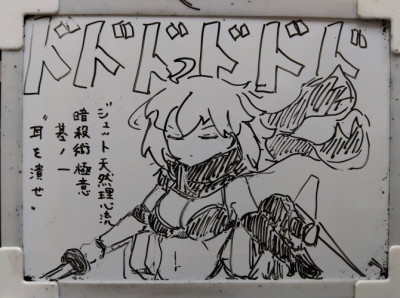 ドドドドドド
ジェット天然理心流
暗殺術極意
基ノ一
“耳を潰せ„